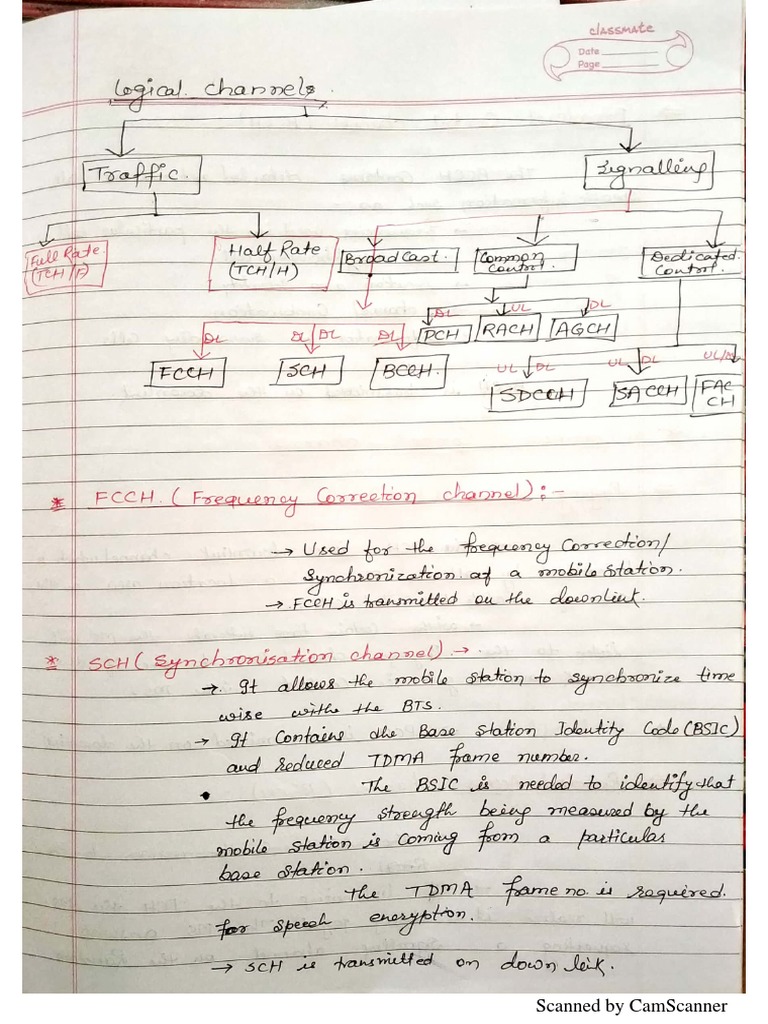 classmate
Date
Page
Logical channels.
Traffic.
Signalling
Full Rate
(TCH/F)
Half Rate
(TCH/H)
BroadCast.
Common
Control.
Dedicated
Control.
DL
UL
DL
PCH
RACH
AGCH
DL
DL
DL
DL
FCCH
SCH
BCCH.
UL
DL
UL
DL
UL/DL
SDCCH
SACCH
FAC
CH
* FCCH. (Frequency Correction channel):-
→ Used for the frequency Correction/
Synchronization of a mobile Station.
→ FCCH is transmitted on the downlink.
* SCH (Synchronisation channel) →
→ It allows the mobile Station to Synchronize time
wise withe the BTS.
→ It Contains the Base Station Identity Code (BSIC)
and reduced TDMA frame number.
• The BSIC is needed to identify that
the frequency strength being measured by the
mobile Station is Coming from a particular
base Station.
The TDMA frame no. is required.
for speech encryption.
→ SCH is transmitted on down link.
Scanned by CamScanner